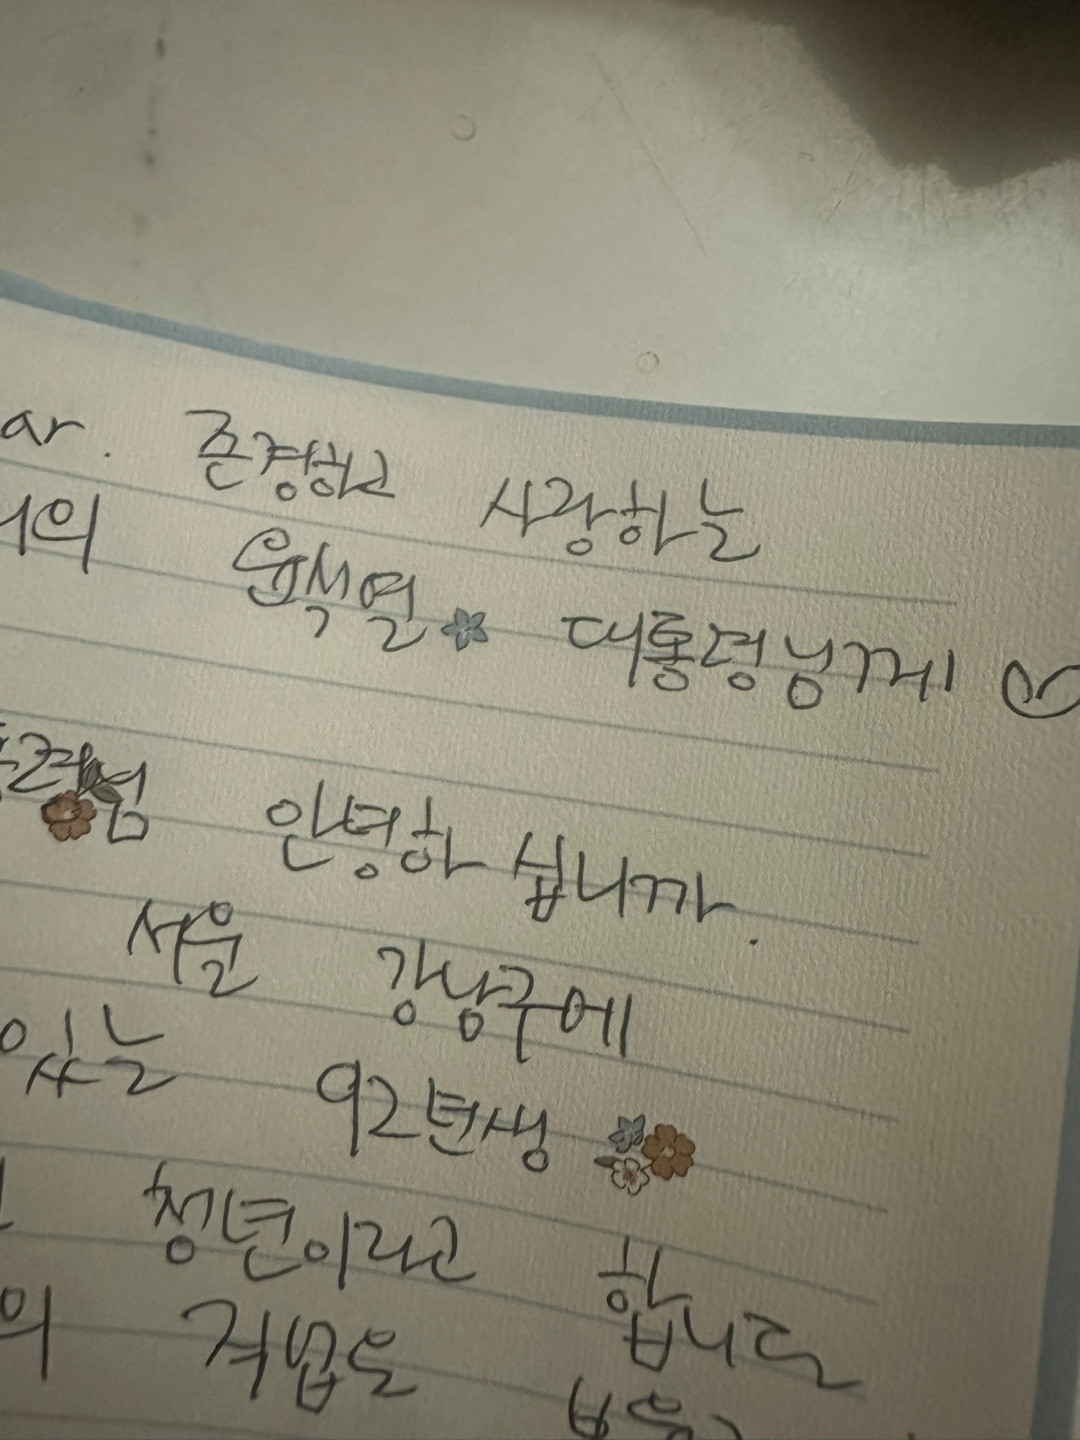 ar. 존경하고 사랑하는
윤석열 대통령님께
안녕하십니까.
서울 강남구에
있는 92년생
청년이라고 합니다
의 직업은